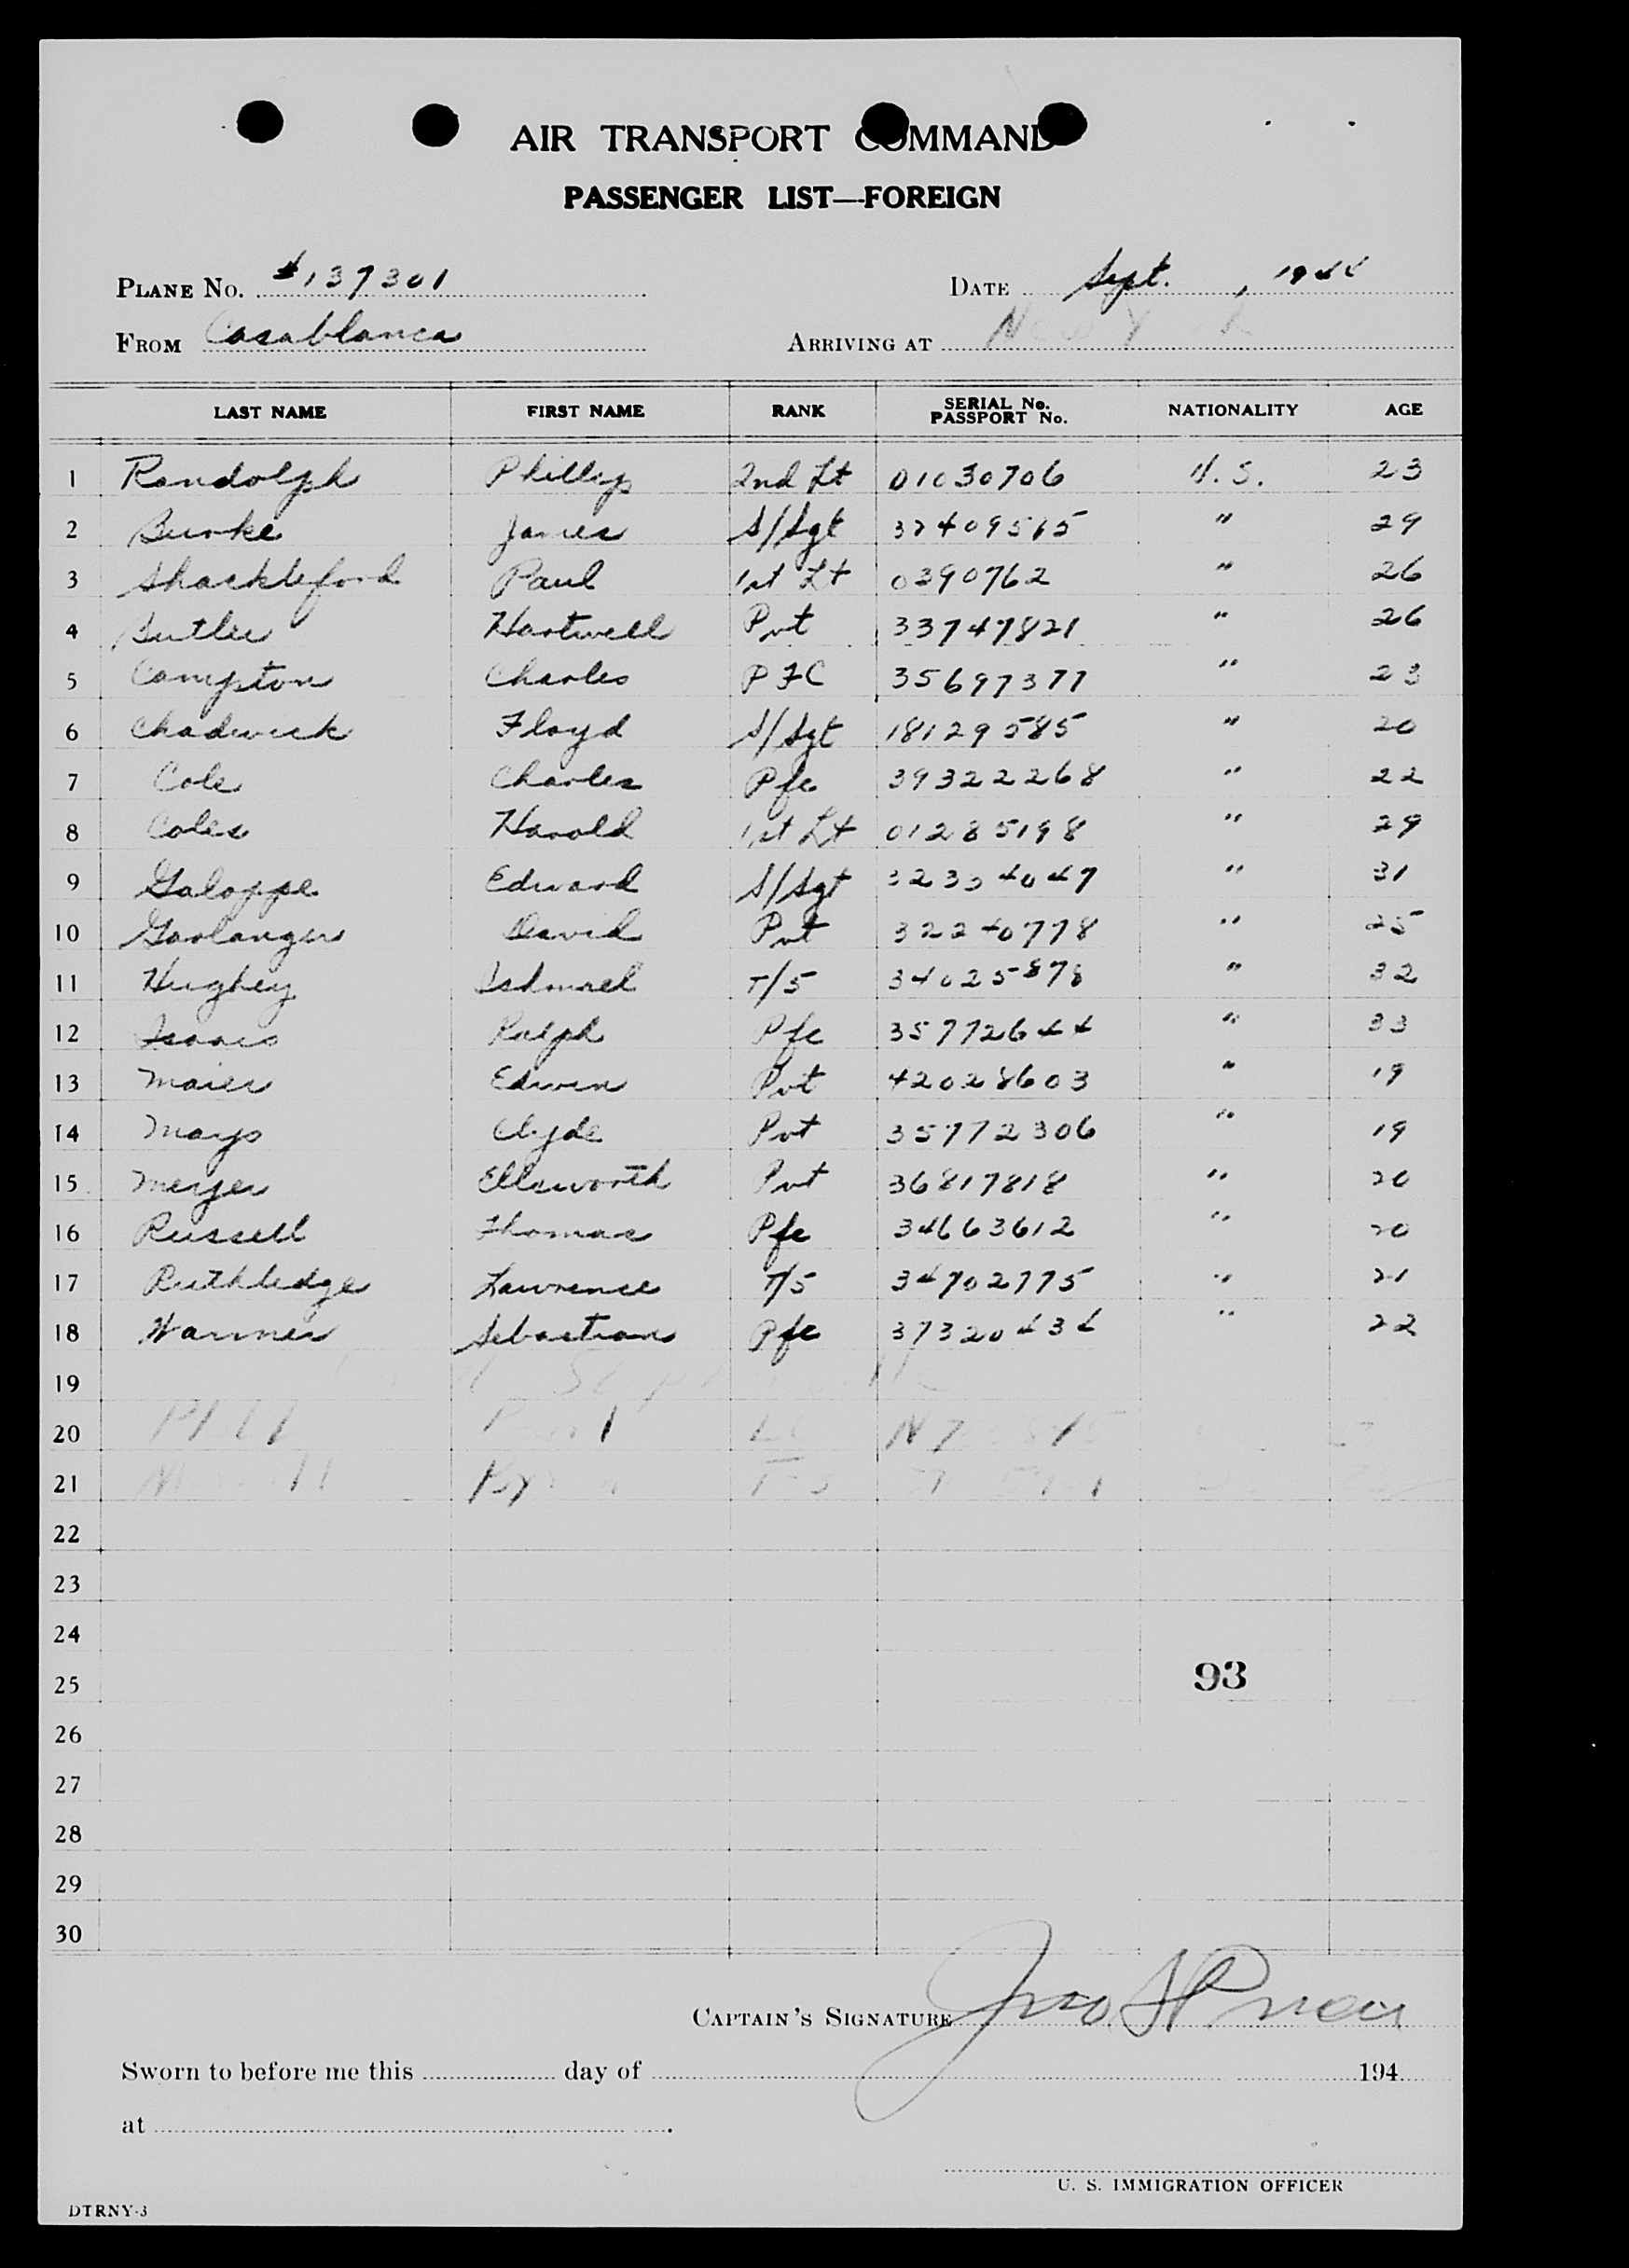 AIR TRANSPORT COMMAND
PASSENGER LIST—FOREIGN
PLANE No. #137301 DATE Sept. , 1944
FROM Casablanca ARRIVING AT New York
LAST NAME FIRST NAME RANK SERIAL No. PASSPORT No. NATIONALITY AGE
1 Randolph Phillip 2nd Lt 01030706 U.S. 23
2 Burke James S/Sgt 37409565 " 29
3 Shackleford Paul 1st Lt 0390762 " 26
4 Butler Hartwell Pvt 33747821 " 26
5 Compton Charles PFC 35697377 " 23
6 Chadwick Floyd S/Sgt 18129585 " 20
7 Cole Charles Pfc 39322268 " 22
8 Coles Harold 1st Lt 01285198 " 29
9 Galoppe Edward S/Sgt " 31
10 Garlanger David Pvt 32240778 " 25
11 Hughey T/5 34025878 " 32
12 Isaacs Ralph Pfc 35772644 " 33
13 Maier Edwin Pvt 42028603 " 19
14 Mays Clyde Pvt 35772306 " 19
15 Meyer Ellsworth Pvt 36817818 " 20
16 Russell Thomas Pfc 34663612 " 20
17 Ruthledge Lawrence T/5 34702775 " 21
18 Warner Sebastian Pfc 37320434 " 22
19
20
21
22
23
24
25 93
26
27
28
29
30
CAPTAIN'S SIGNATURE
Sworn to before me this day of 194
at
U. S. IMMIGRATION OFFICER
DTRNY-3